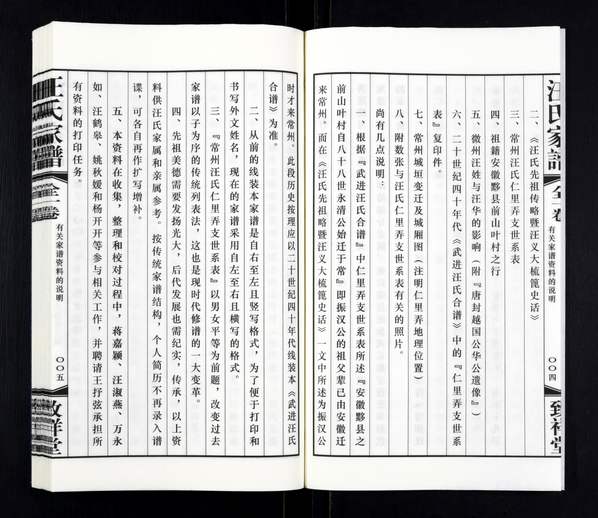 汪氏家譜
全一卷
有关家谱资料的说明
〇〇四
致祥堂
二、《汪氏先祖传略暨汪义大梳篦史话》
三、常州汪氏仁里弄支世系表
四、祖籍安徽黟县前山叶村之行
五、徽州汪姓与汪华的影响（附『唐封越国公华公遗像』）
六、二十世纪四十年代《武进汪氏合谱》中的『仁里弄支世系
表』复印件。
七、常州城垣变迁及城厢图（注明仁里弄地理位置）
八、附数张与汪氏仁里弄支世系表有关的照片。
尚有几点说明：
一、根据『武进汪氏合谱』中仁里弄支世系表所述『安徽黟县之
前山叶村自八十八世永清公始迁于常』即振汉公的祖父辈已由安徽迁
来常州。而在《汪氏先祖传略暨汪义大梳篦史话》一文中所述为振汉公
时才来常州。此段历史按理应以二十世纪四十年代线装本《武进汪氏
合谱》为准。
二、从前的线装本家谱是自右至左且竖写格式，为了便于打印和
书写外文姓名，现在的家谱采用自左至右且横写的格式。
三、『常州汪氏仁里弄支世系表』以男女平等为前题，改变过去
家谱以子为序的传统列表法，这也是现时代修谱的一大变革。
四、先祖美德需要发扬光大，后代发展也需纪实，传承，以上资
料供汪氏家属和亲属参考。按传统家谱结构，个人简历不再录入谱
谍，可各自再作扩写增补。
五、本资料在收集，整理和校对过程中，蒋嘉颖、汪淑燕、万永
如、汪鹤皋、姚秋媛和杨开开等参与相关工作，并聘请王抒弦承担所
有资料的打印任务。
汪氏家譜
全一卷
有关家谱资料的说明
〇〇五
致祥堂